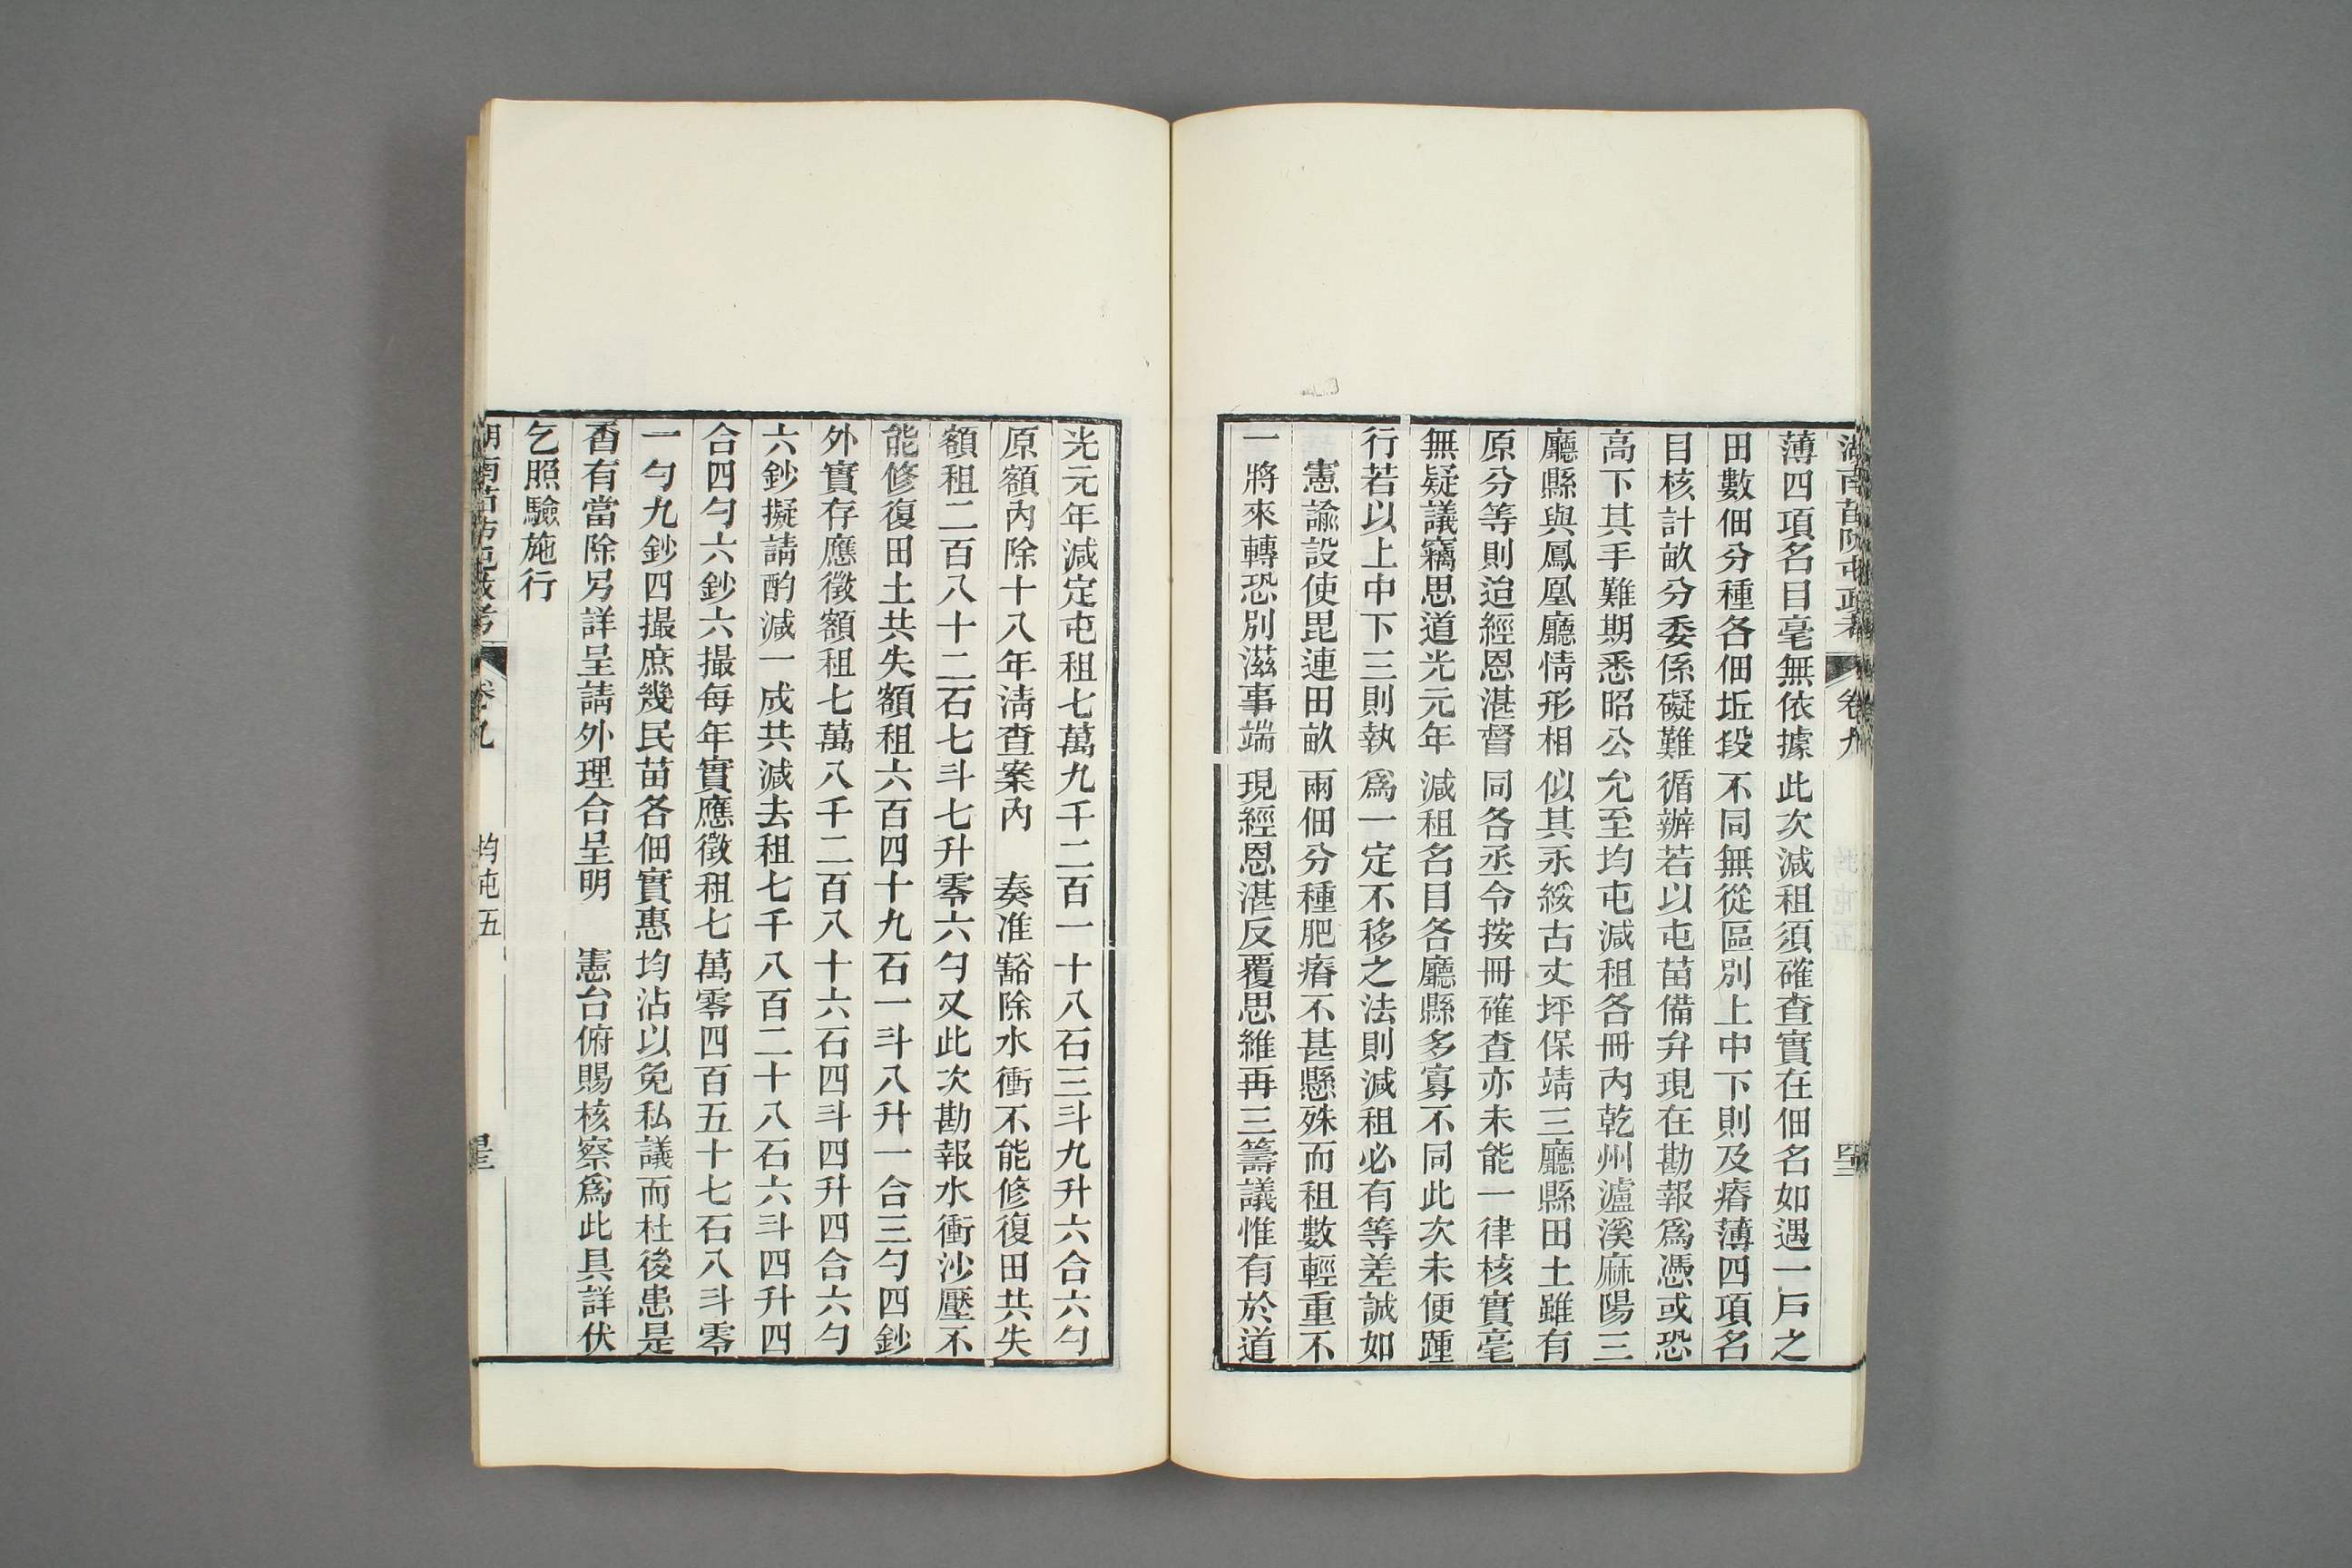 湖南苗防屯政考 卷九
薄四項名目毫無依據此次減租須確查實在佃名如遇一戶之
田數佃分種各佃坵段不同無從區別上中下則及瘠薄四項名
目核計畝分委係礙難循辦若以屯苗備弁現在勘報爲憑或恐
高下其手難期悉昭公允至均屯減租各冊內乾州瀘溪麻陽三
廳縣與鳳凰廳情形相似其永綏古丈坪保靖三廳縣田土雖有
原分等則迨經恩湛督同各丞令按冊確查亦未能一律核實毫
無疑議竊思道光元年減租名目各廳縣多寡不同此次未便踵
行若以上中下三則執爲一定不移之法則減租必有等差誠如
憲諭設使毘連田畝兩佃分種肥瘠不甚懸殊而租數輕重不
一將來轉恐別滋事端現經恩湛反覆思維再三籌議惟有於道
光元年減定屯租七萬九千二百一十八石三斗九升六合六勺
原額內除十八年淸查案內 奏准豁除水衝不能修復田共失
額租二百八十二石七斗七升零六勺又此次勘報水衝沙壓不
能修復田土共失額租六百四十九石一斗八升一合三勺四鈔
外實存應徵額租七萬八千二百八十六石四斗四升四合六勺
六鈔擬請酌減一成共減去租七千八百二十八石六斗四升四
合四勺六鈔六撮每年實應徵租七萬零四百五十七石八斗零
一勺九鈔四撮庶幾民苗各佃實惠均沾以免私議而杜後患是
否有當除另詳呈請外理合呈明 憲台俯賜核察爲此具詳伏
乞照驗施行
湖南苗防屯政考 卷九 均屯五